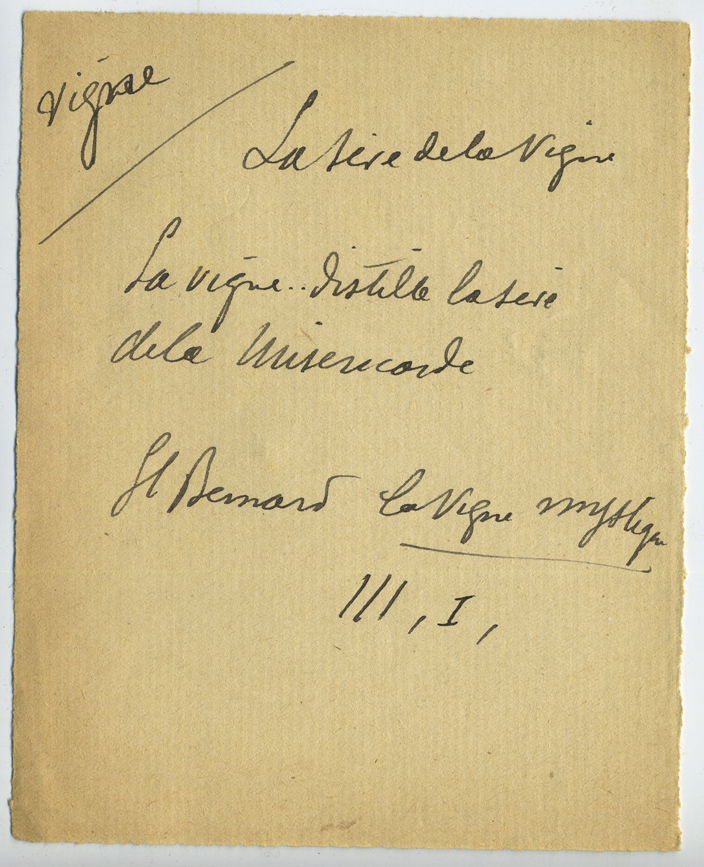 vigne
La sève de la Vigne
La vigne.. distille la sève
de la Misericorde
St Bernard la Vigne mystique
III, I,